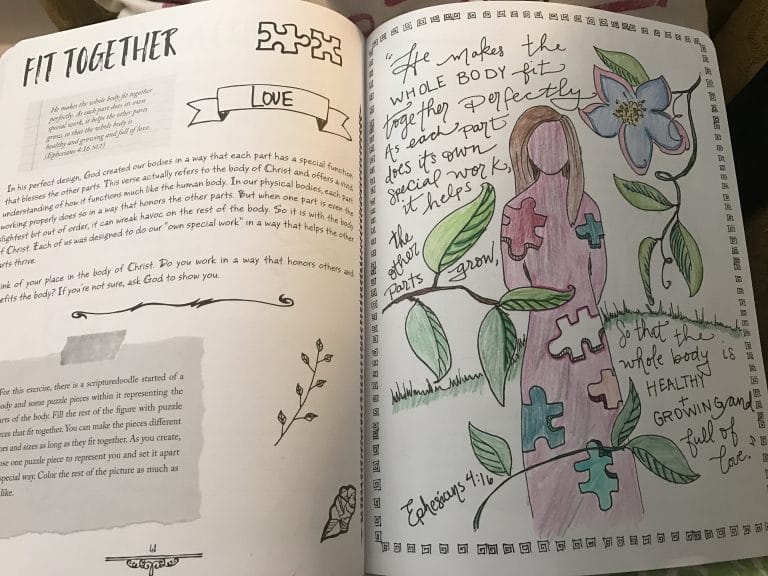 FIT TOGETHER
He makes the whole body fit together
perfectly. As each part does its own
special work, it helps the other parts
grow, so that the whole body is
healthy and growing and full of love.
(Ephesians 4:16 NLT)
LOVE
In his perfect design, God created our bodies in a way that each part has a special function
that blesses the other parts. This verse actually refers to the body of Christ and offers a vivid
understanding of how it functions much like the human body. In our physical bodies, each part
working properly does so in a way that honors the other parts. But when one part is even the
lightest bit out of order, it can wreak havoc on the rest of the body. So it is with the body
of Christ. Each of us was designed to do our "own special work" in a way that helps the other
arts thrive.
ink of your place in the body of Christ. Do you work in a way that honors others and
efits the body? If you're not sure, ask God to show you.
For this exercise, there is a scripturedoodle started of a
ody and some puzzle pieces within it representing the
arts of the body. Fill the rest of the figure with puzzle
eces that fit together. You can make the pieces different
ors and sizes as long as they fit together. As you create,
ose one puzzle piece to represent you and set it apart
special way. Color the rest of the picture as much as
like.
"He makes the
WHOLE BODY fit
together perfectly
As each part
does its own
special work,
it helps
the
other
parts grow,
So that the
whole body is
HEALTHY
+
GROWING and
full of
love."
Ephesians 4:16